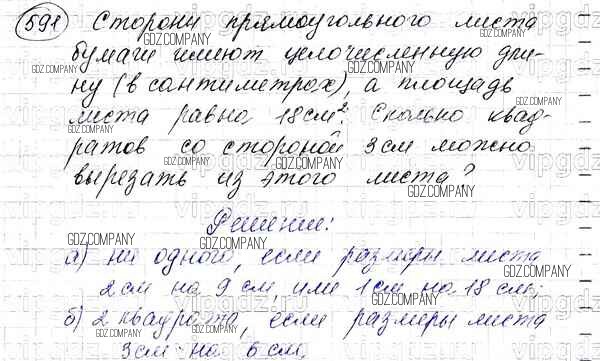 591 Стороны прямоугольного листа
бумаги имеют целочисленную дли-
ну (в сантиметрах), а площадь
листа равна 18 см². Сколько квад-
ратов со стороной 3 см можно
вырезать из этого листа?
Решение:
а) ни одного, если размеры листа
2 см на 9 см, или 1 см на 18 см;
б) 2 квадрата, если размеры листа
3 см на 6 см.